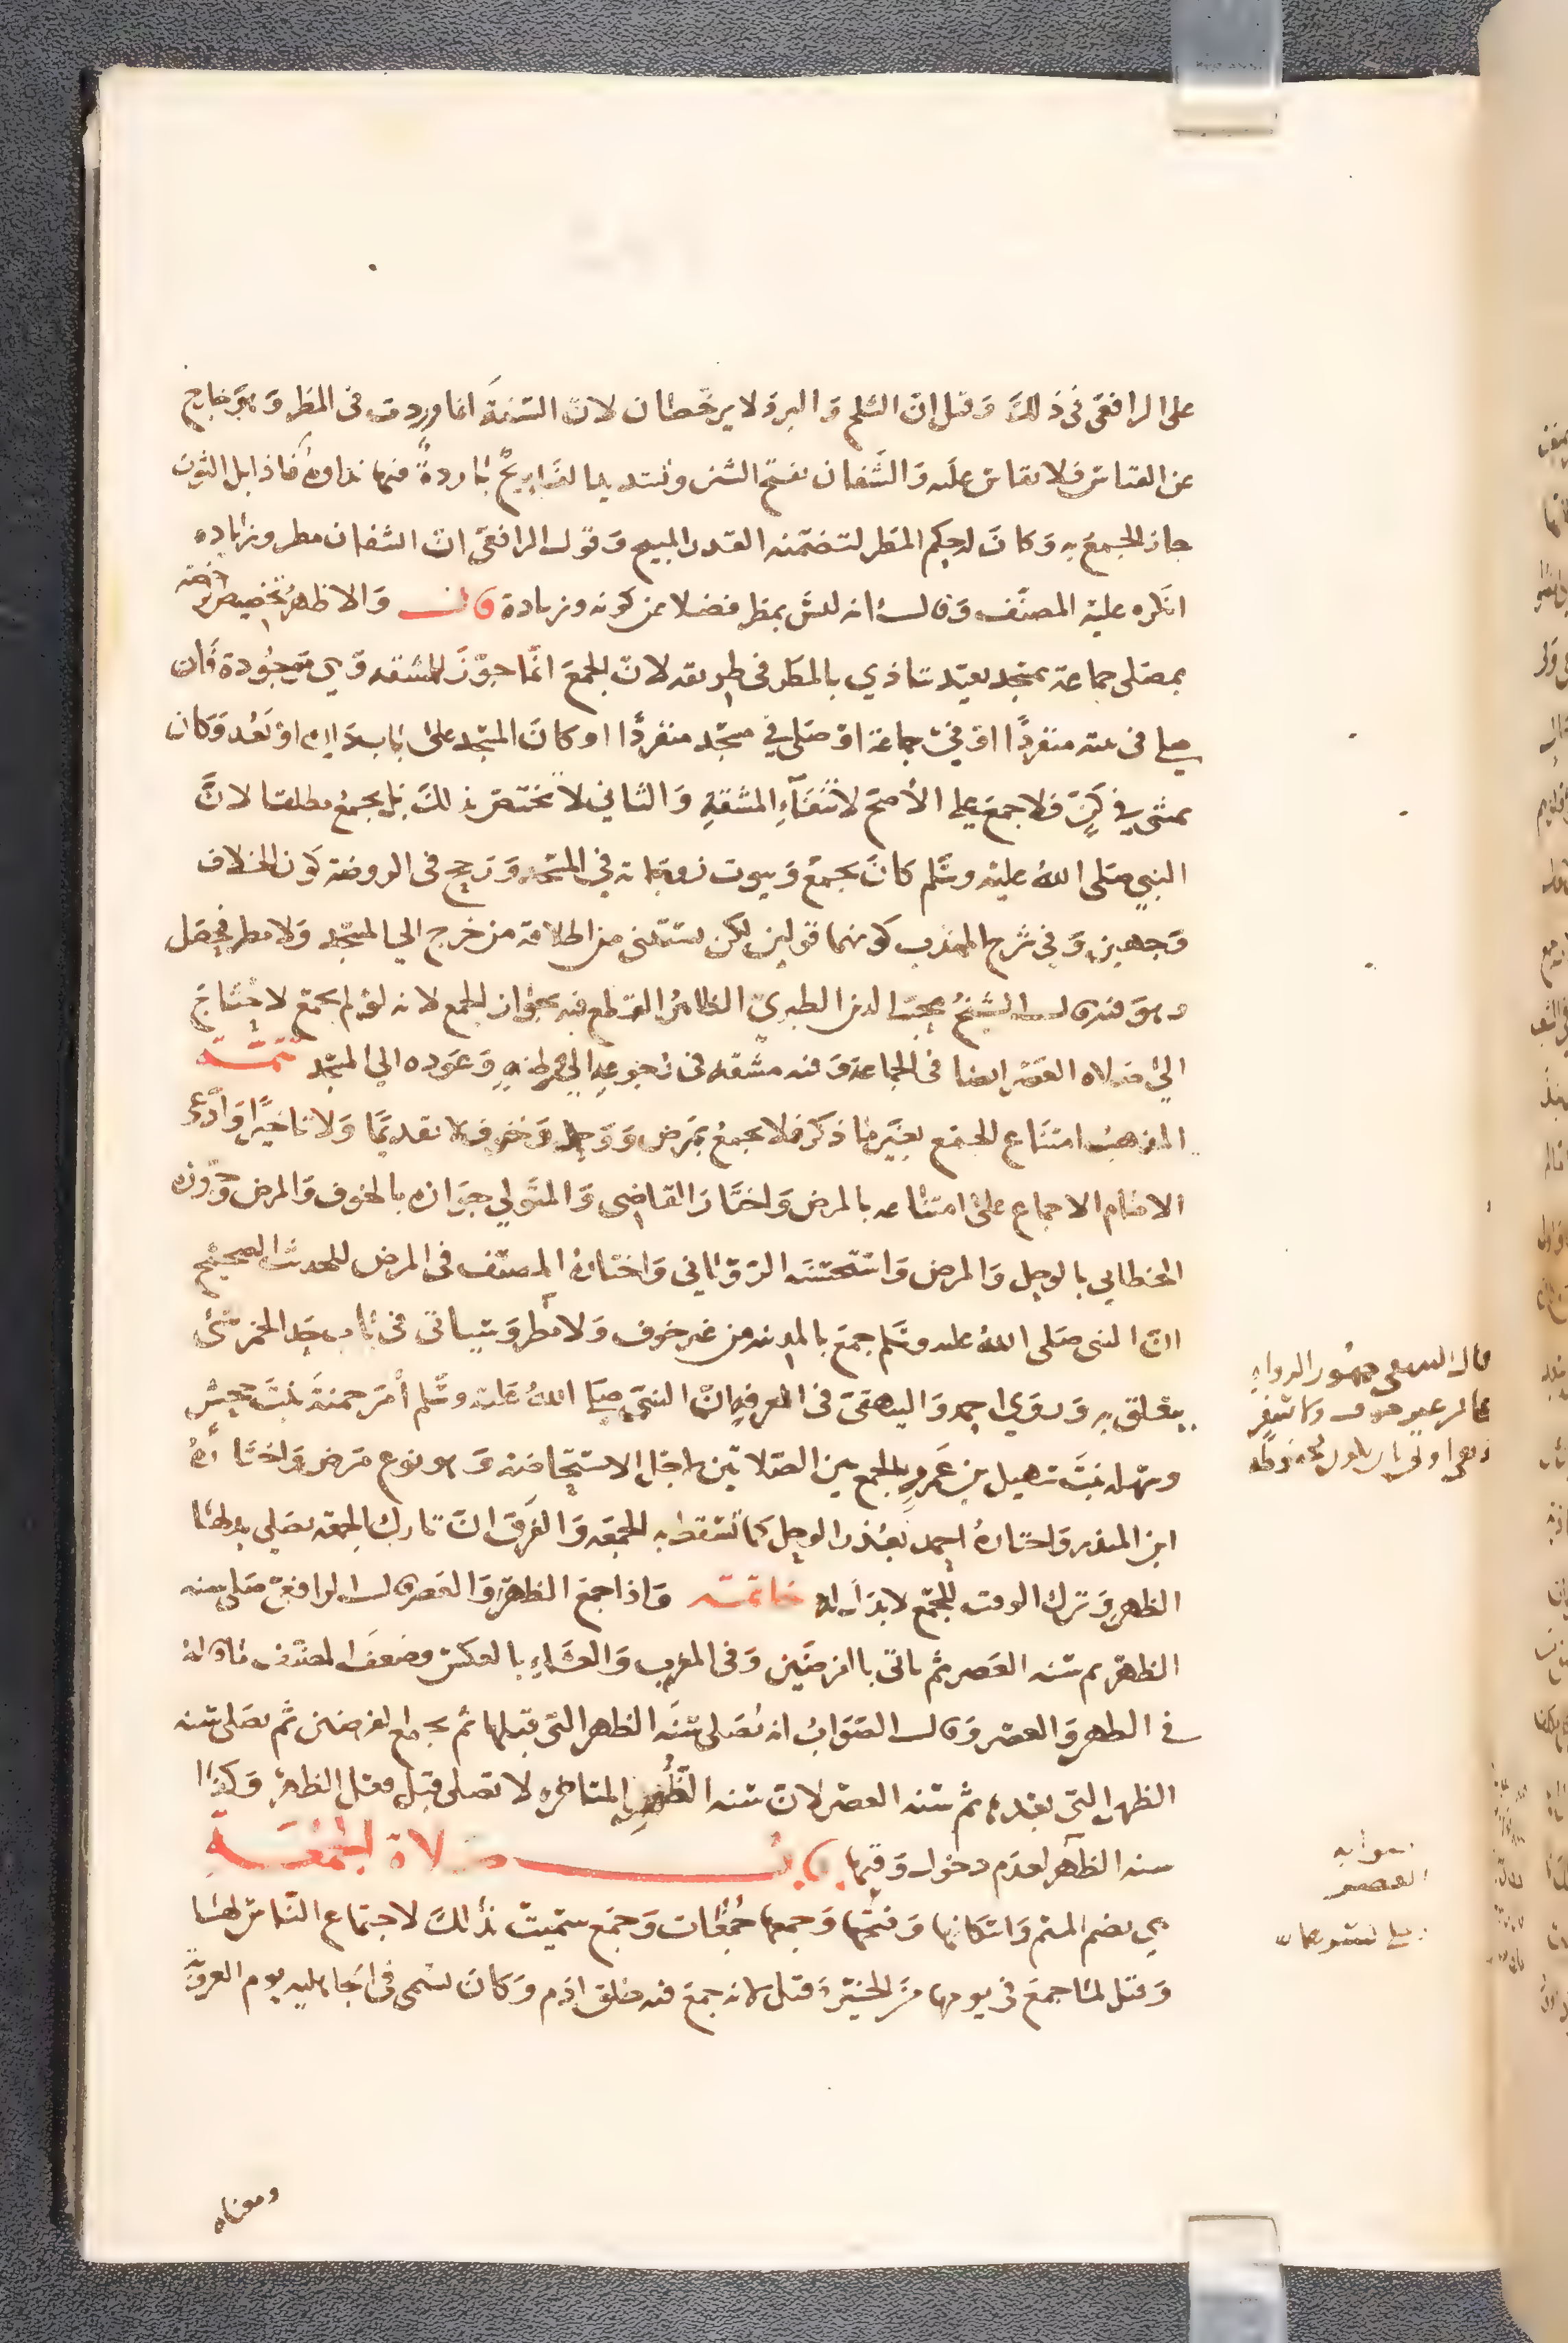 على الرافعي في ذلك وقيل ان الثلج والبرد لا يرخصان لان السنة انما وردت في المطر وهو خارج
عن القياس فلا يقاس عليه والشفان بفتح الشين وتشديد الفا ريح باردة فيها نداوة فاذا بل الثوب
جاز الجمع به وكان له حكم المطر لتضمنه القدر المبيح وقول الرافعي ان الشفان مطر وزيادة
انكره عليه المصنف وقال انه ليس بمطر فضلا عن كونه وزيادة قال والاظهر تخصيص الرخصة
بمصلي جماعة بمسجد بعيد يتاذى بالمطر في طريقه لان الجمع انما جوز للمشقة وهي موجودة فان
صلى في بيته منفردا او في جماعة او صلى في مسجد منفردا او كان المسجد على باب داره او بعد وكان
يمشي في كن فلا جمع على الاصح لانتفاء المشقة والثاني لا يختص بذلك بل يجمع مطلقا لان
النبي صلى الله عليه وسلم كان يجمع وبيوت زوجاته في المسجد ورجح في الروضة كون الخلاف
وجهين وفي شرح المهذب كونهما قولين لكن يستثنى من اطلاقه من خرج الى المسجد ولا مطر فحصل
وهو فيه قال الشيخ محب الدين الطبري الظاهر القطع فيه بجواز الجمع لانه لو لم يجمع لاحتاج
الى صلاة العصر ايضا في الجماعة وفيه مشقة في رجوعه الى وعوده الى المسجد تتمة
المذهب امتناع الجمع بغير ما ذكر فلا يجمع بمرض ووحل وخوف لا تقديما ولا تاخيرا وادعى
الامام الاجماع على امتناعه بالمرض واختار القاضي والمتولي جوازه بالخوف والمرض وجوزه
الخطابي بالوحل والمرض واستحسنه الروياني واختاره المصنف في المرض للحديث الصحيح
ان النبي صلى الله عليه وسلم جمع بالمدينة من غير خوف ولا مطر وسياتي في باب حد الخمر شئ
يتعلق به وروى احمد والبيهقي في المعرفة ان النبي صلى الله عليه وسلم امر حمنة بنت جحش
وسهلة بنت سهيل بن عمرو بالجمع بين الصلاتين لاجل الاستحاضة وهو نوع مرض واختاره
ابن المنذر واختاره احمد بعذر الوحل كما تسقط به الجمعة والفرق ان تارك الجمعة يصلي بدلها
الظهر وترك الوقت للجمع لا بدل له خاتمة واذا جمع الظهر والعصر قال الرافعي صلى سنة
الظهر ثم سنة العصر ثم ياتي بالفرضين وفي المغرب والعشاء بالعكس وضعف المصنف ما قاله
في الظهر والعصر وقال الصواب انه يصلي سنة الظهر التي قبلها ثم يجمع الفرضين ثم يصلي سنة
الظهر التي بعدها ثم سنة العصر لان سنة الظهر المتاخرة لا تصلى قبل فعل الظهر وكذا
سنة الظهر لعدم دخول وقتها باب صلاة الجمعة
هي بضم الميم واسكانها وفتحها وجمعها جمعات وجمع سميت بذلك لاجتماع الناس لها
وقيل لما جمع في يومها من الخير وقيل لانه جمع فيه خلق ادم وكان يسمى في الجاهلية يوم العروبة
قال البيهقي جمهور الرواة
من غير خوف ولا سفر
وهي اولى بان تكون محفوظة
صوابه
العصر
ومعناه